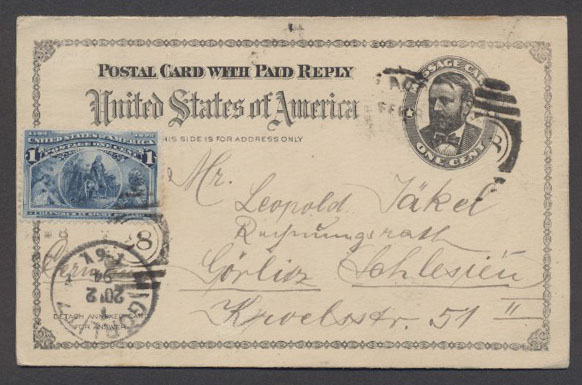 POSTAL CARD WITH PAID REPLY
MESSAGE CARD
United States of America
THIS SIDE IS FOR ADDRESS ONLY
ONE CENT
UNITED STATES OF AMERICA
1 POSTAGE ONE CENT 1
Mr.
Leopold Jäkel
Rechnungsrath
Görlitz Schlesien
51 II
Germany
DETACH ANSWER CARD
FOR ANSWER